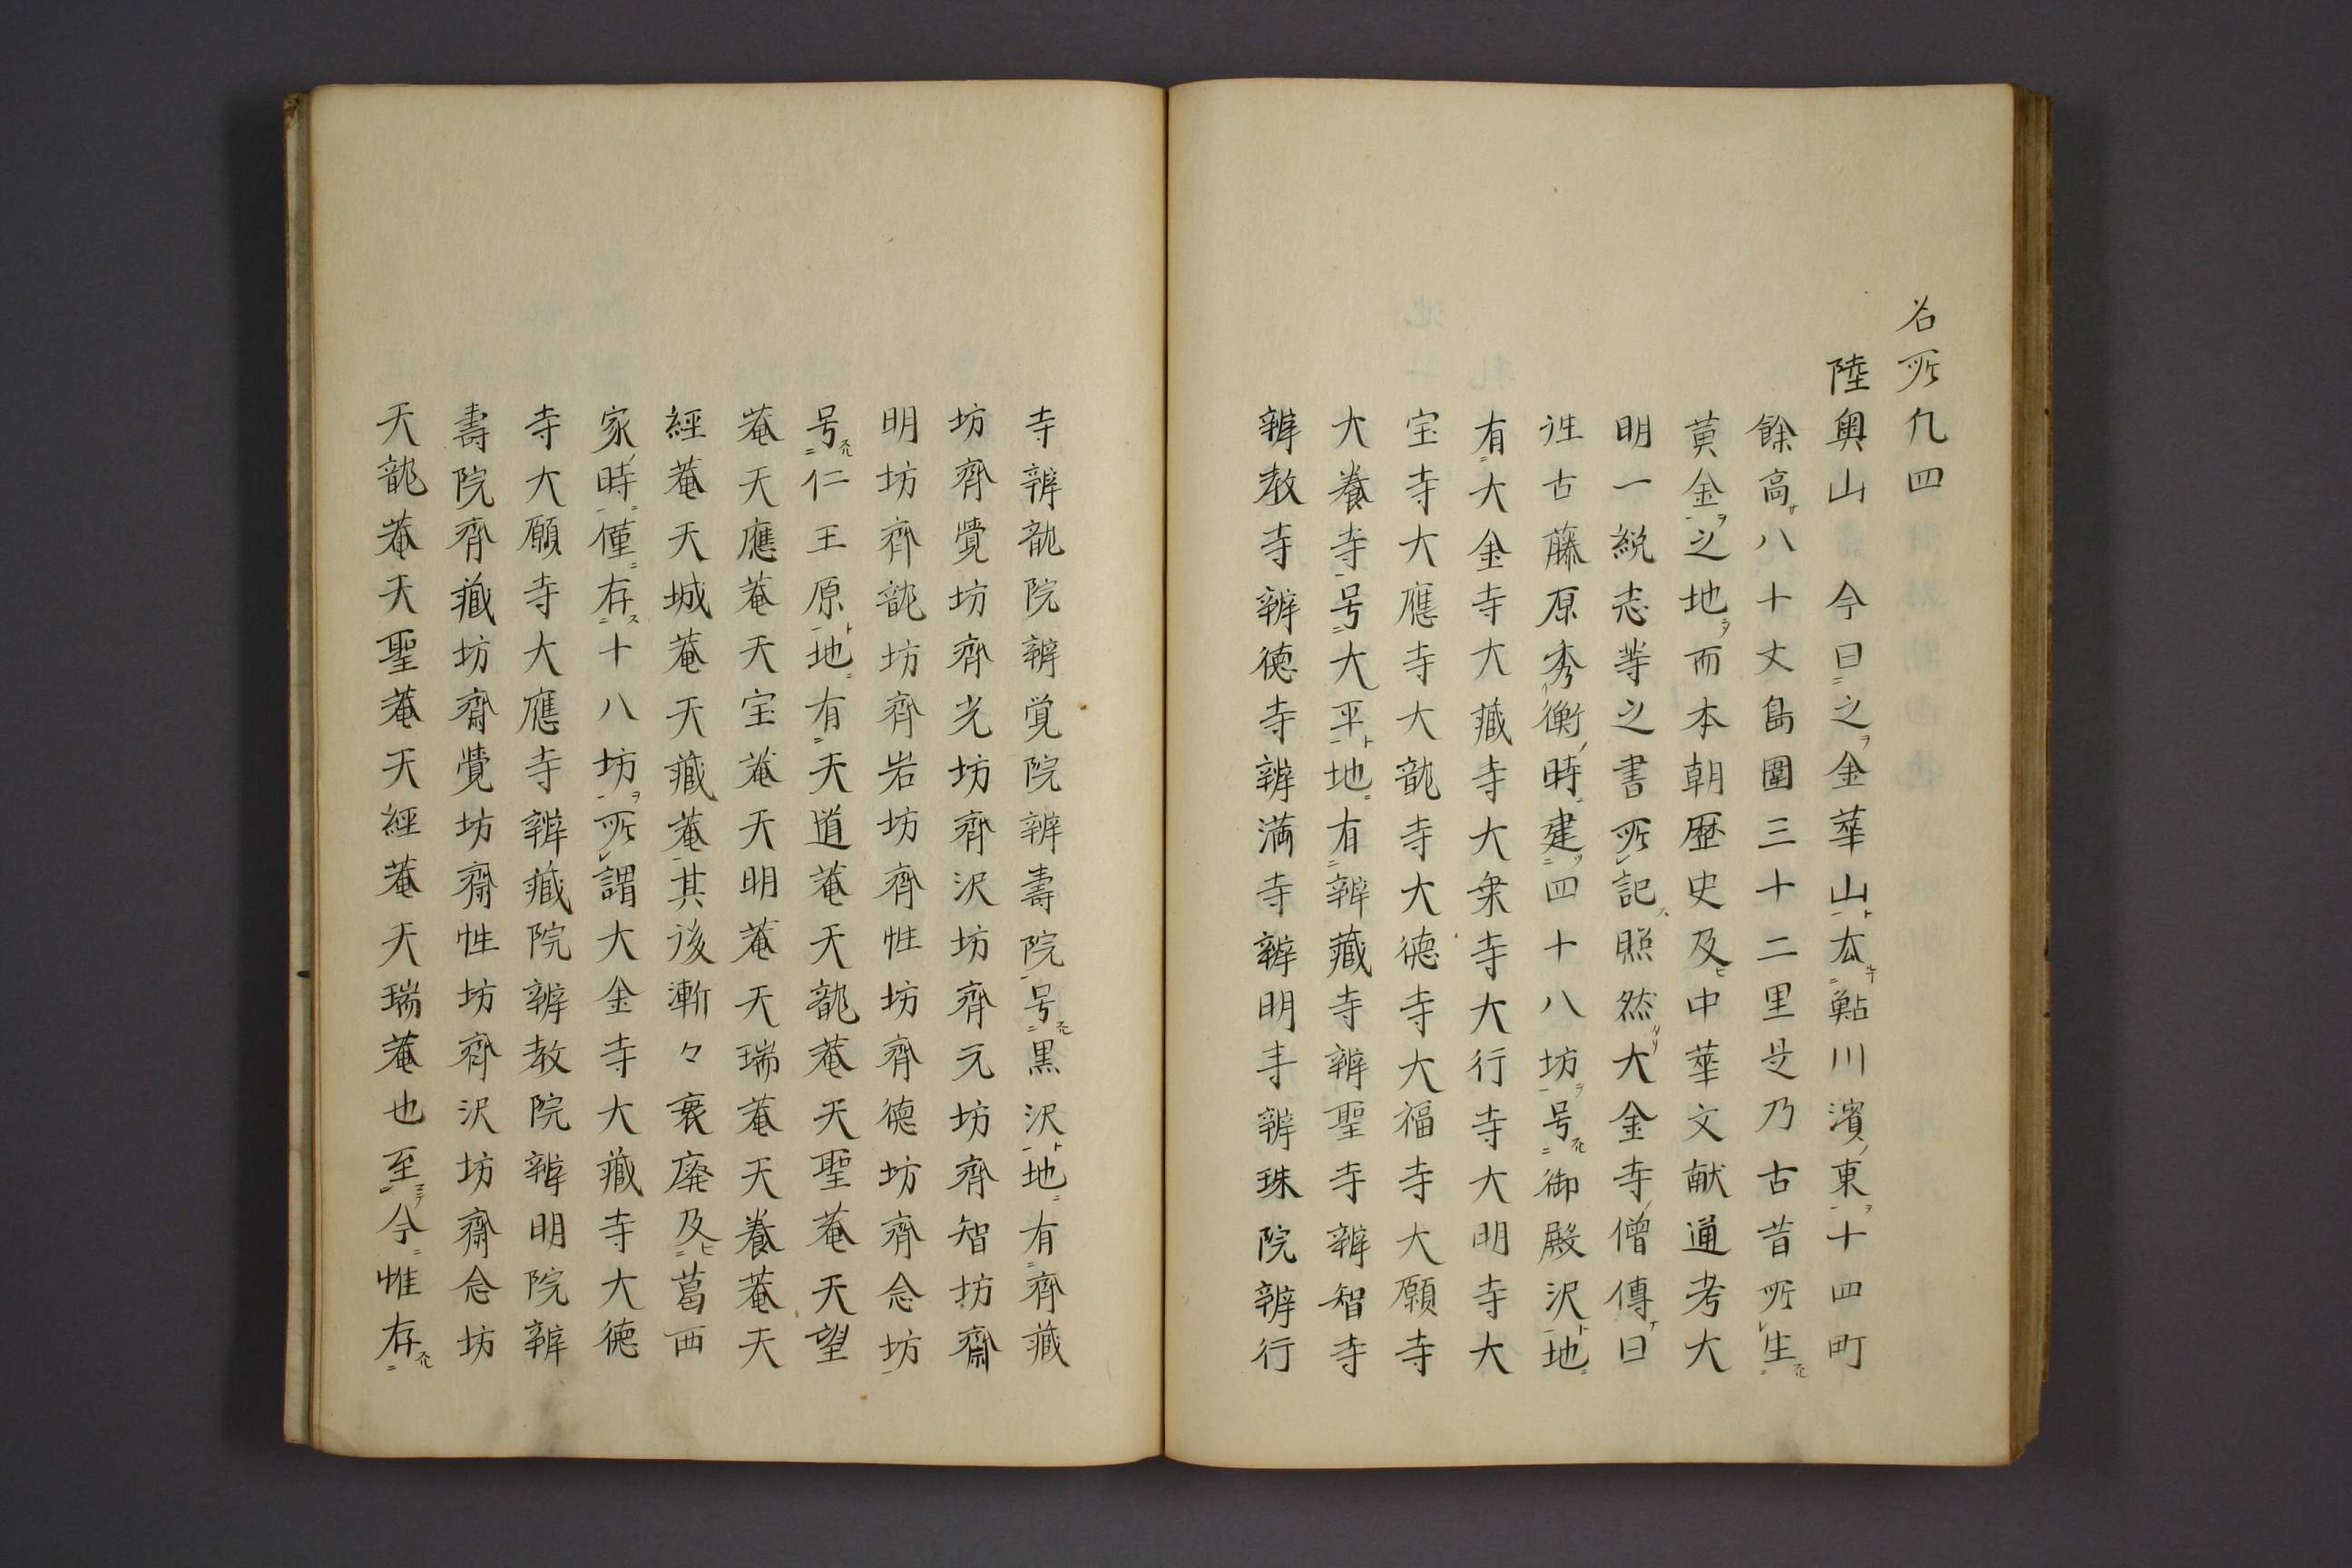 名所凡四
陸奥山　今曰之金華山在鮎川濱東十四町
餘高八十丈島圍三十二里是乃古昔所生
黄金之地而本朝歴史及中華文献通考大
明一統志等之書所記照然大金寺僧傳曰
往古藤原秀衡時建四十八坊号御殿沢地
有大金寺大藏寺大衆寺大行寺大明寺大
宝寺大應寺大龍寺大徳寺大福寺大願寺
大養寺号大平地有辨藏寺辨聖寺辨智寺
辨教寺辨徳寺辨満寺辨明寺辨珠院辨行
寺辨龍院辨覚院辨壽院号黒沢地有齊藏
坊齊覺坊齊光坊齊沢坊齊元坊齊智坊齋
明坊齊龍坊齊岩坊齊性坊齊徳坊齊念坊
号仁王原地有天道菴天龍菴天聖菴天望
菴天應菴天宝菴天明菴天瑞菴天養菴天
經菴天城菴天藏菴其後漸々衰廃及葛西
家時僅存十八坊所謂大金寺大藏寺大徳
寺大願寺大應寺辨藏院辨教院辨明院辨
壽院齊藏坊齋覺坊齋性坊齊沢坊齋念坊
天龍菴天聖菴天經菴天瑞菴也至今惟存